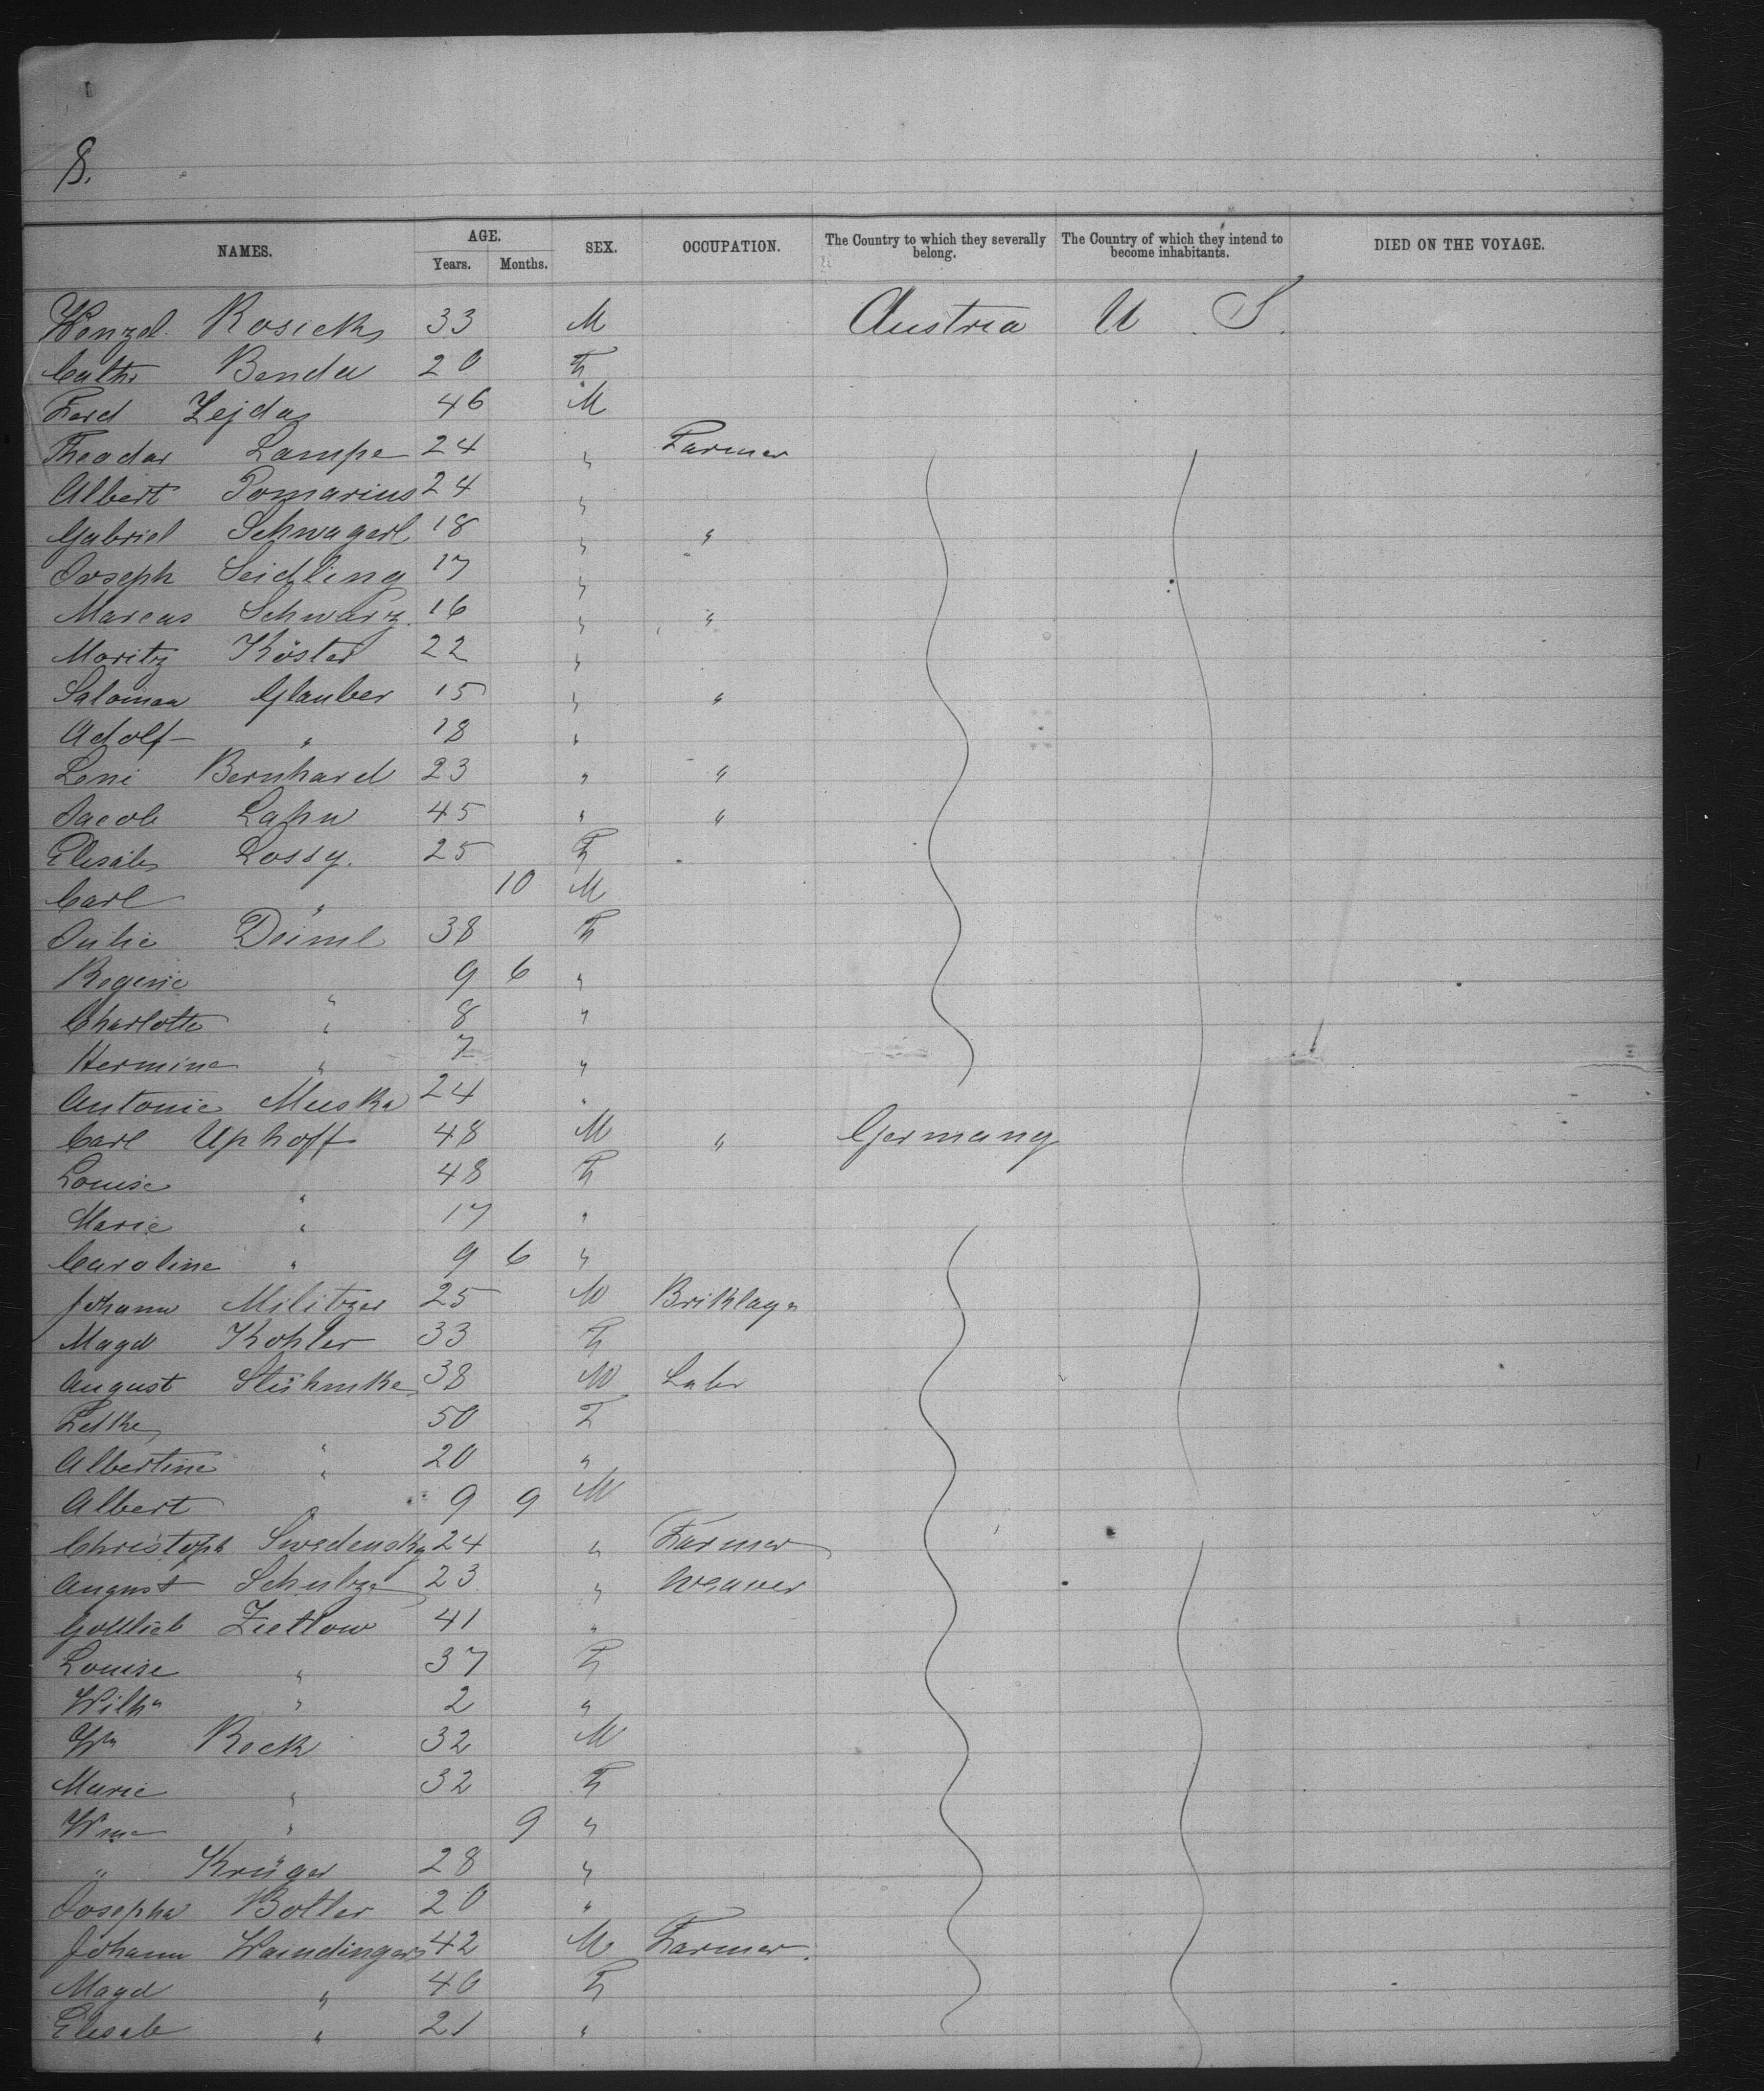 8.
NAMES. AGE. Years. Months. SEX. OCCUPATION. The Country to which they severally belong. The Country of which they intend to become inhabitants. DIED ON THE VOYAGE.
Wenzel Rosicky 33 M Austria U. S.
Cathr Benda 20 F
Ferd Zejda 46 M
Theodor Lampe 24 " Farmer
Albert Pomarius 24 "
Gabriel Schwagerl 18 " "
Joseph Seidling 17 "
Marcus Schwarz. 16 " "
Moritz Köster 22 "
Salomon Glauber 15 " "
Adolf " 18 "
Leni Bernhard 23 " "
Jacob 45 " "
Elisab Lossy. 25 F
Carl " 10 M
Julie Deiml 38 F
Regine " 9 6 "
Charlotte " 8 "
Hermine " 7 "
Antonie Muska 24 "
Carl Uphoff 48 M " Germany
Louise " 48 F
Marie " 17 "
Caroline " 9 6 "
Johann Militzer 25 M Briklayr
Magd Kohler 33 F
August Stühmke 38 M Labr
50 F
Albertine " 20 "
Albert " 9 9 M
Christoph Swedensky 24 " Farmer
August Schulze 23 " Weaver
Gottlieb Zietlow 41 "
Louise " 37 F
Wilhe " 2 "
Wm Reck 32 M
Marie " 32 F
Wme " 9 "
" Krüger 28 "
Josepha Botler 20 "
Johann Waindinger 42 M Farmer.
Magd " 40 F
Elisab " 21 "